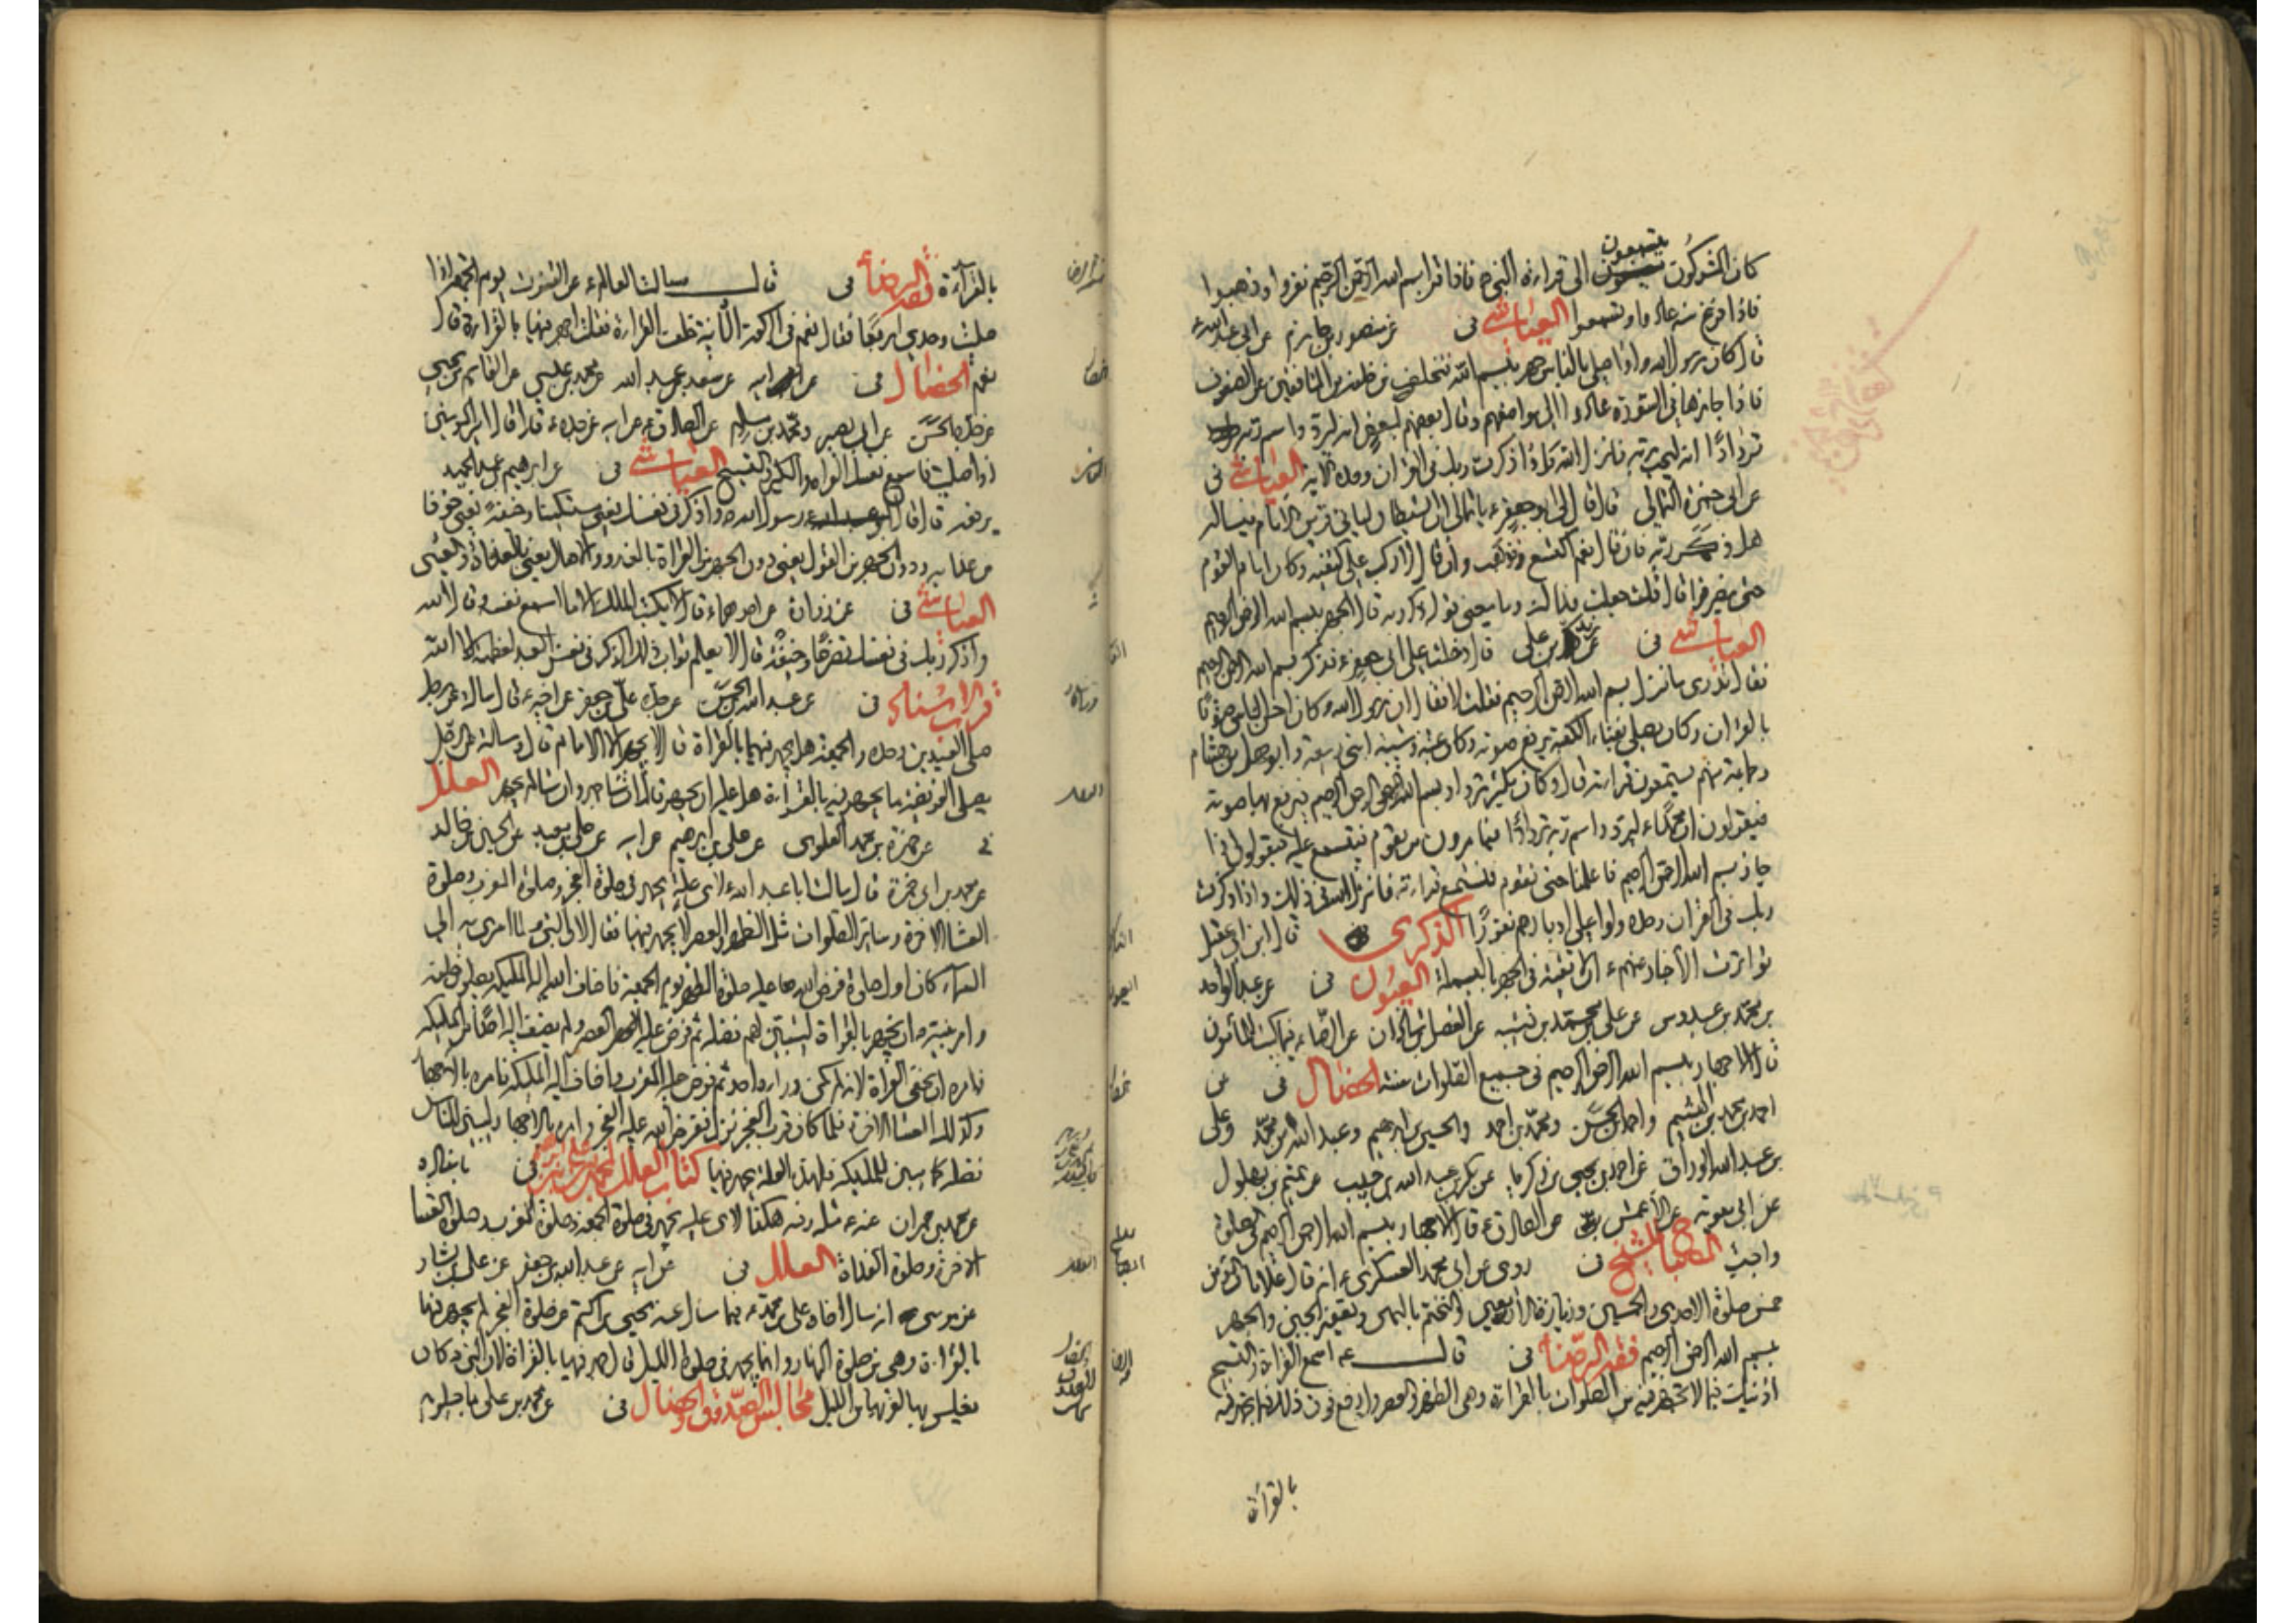 كان المشركون يستمعون الى قراءة النبي ص فاذا قرا بسم الله الرحمن الرحيم نفروا وذهبوا
فاذا فرغ منه عادوا وتسمعوا العياشي في عن منصور بن حازم عن ابي عبد الله ع
قال كان رسول الله ص اذا صلى بالناس جهر ببسم الله فتخلف من خلفه من المنافقين عن الصفوف
فاذا جازها في السورة عادوا الى مواضعهم وقال بعضهم لبعض انه ليردد اسم ربه
تردادًا انه ليحب ربه فانزل الله واذا ذكرت ربك في القران وحده الاية العياشي في
عن ابي حمزة الثمالي قال قال لي ابو جعفر ع يا ثمالي ان الشيطان لياتي قرين الامام فيساله
هل ذكر ربه فان قال نعم اكتسع فذهب وان قال لا ركب على كتفيه وكان امام القوم
حتى ينصرفوا قال قلت جعلت فداك وما معنى قوله ذكر ربه قال الجهر ببسم الله الرحمن الرحيم
العياشي في عن زيد بن علي قال دخلت على ابي جعفر ع فذكر بسم الله الرحمن الرحيم
فقال تدري ما نزل بسم الله الرحمن الرحيم فقلت لا فقال ان رسول الله ص كان احسن الناس صوتًا
بالقران وكان يصلي بفناء الكعبة يرفع صوته وكان عتبة وشيبة ابني ربيعة وابو جهل بن هشام
وجماعة منهم يستمعون قراءته قال وكان يكثر ترداد بسم الله الرحمن الرحيم فيرفع بها صوته
فيقولون ان محمدًا ليردد اسم ربه تردادًا فيامرون من يقوم فيستمع عليه ويقولون اذا
جاز بسم الله الرحمن الرحيم فاعلمنا حتى نقوم فنستمع قراءته فانزل الله في ذلك واذا ذكرت
ربك في القران وحده ولوا على ادبارهم نفورًا الذكرى قال ابن ابي عقيل
تواترت الاخبار عنهم ع ان لا تقية في الجهر بالبسملة العيون في عن عبد الواحد
بن محمد بن عبدوس عن علي بن محمد بن قتيبه عن الفضل بن شاذان عن الرضا ع فيما كتب للمأمون
قال الاجهار ببسم الله الرحمن الرحيم في جميع الصلوات سنة الخصال في عن
احمد بن محمد بن الهيثم واحمد بن الحسن ومحمد بن احمد والحسين بن ابرهيم وعبد الله بن محمد وعلي
بن عبد الله الوراق عن احمد بن يحيى بن زكريا عن بكر بن عبد الله بن حبيب عن تميم بن بهلول
عن ابي معوية عن الأعمش عن الصادق ع قال الاجهار ببسم الله الرحمن الرحيم في صلوة
واجب المصباح للشيخ في روى عن ابي محمد العسكري ع انه قال علامات المؤمن
خمس صلوة الاحدى والخمسين وزيارة الأربعين والتختم باليمين وتعفير الجبين والجهر
ببسم الله الرحمن الرحيم فقه الرضا في قال ع اسمع القراءة والتسبيح
أذنيك فيما لا تجهر فيه من الصلوات بالقراءة وهي الظهر والعصر وارفع فوق ذلك فيما تجهر فيه
بالقرأة
بالقرأءة فقه الرضا في قال سالت العالم ع عن القنوت يوم الجمعة اذا
صليت وحدي اربعًا فقال نعم في الركعة الثانية خلف القراءة فقلت اجهر فيها بالقراءة قال
نعم الخصال في عن ابيه عن سعد بن عبد الله عن محمد بن عيسى عن القاسم بن يحيى
عن جده الحسن عن ابي بصير ومحمد بن مسلم عن الصادق ع عن ابيه عن جده ع قال قال امير المؤمنين
اذا صليت فاسمع نفسك القراءة والتكبير والتسبيح العياشي في عن ابرهيم بن عبد الحميد
يرفعه قال قال رسول الله ص واذكر ربك في نفسك يعني مستكينًا وخيفةً يعني خوفًا
من عذابه ودون الجهر من القول يعني دون الجهر من القراءة بالغدو والاصال يعني بالغداة والعشي
العياشي في عن زرارة عن احدهما ع قال لا يكتب الملك الا ما اسمع نفسه وقال الله
واذكر ربك في نفسك تضرعًا وخيفةً قال لا يعلم ثواب ذلك الذكر في نفس العبد لعظمته الا الله
قرب الاسناد في عن عبد الله بن الحسن عن جده علي بن جعفر عن اخيه ع قال سالته عن رجل
صلى العيدين وحده والجمعة هل يجهر فيهما بالقراءة قال لا يجهر الا الامام قال وسالته عن الرجل
يصلي الفريضة ما يجهر فيه بالقراءة هل عليه ان يجهر قال ان شا جهر وان شا لم يجهر العلل
في عن حمزة بن محمد العلوي عن علي بن ابرهيم عن ابيه عن علي بن معبد عن الحسين بن خالد
عن محمد بن ابي حمزة قال سالت ابا عبد الله ع لاي علة يجهر في صلوة الفجر وصلوة المغرب وصلوة
العشا الاخرة وسائر الصلوات مثل الظهر والعصر لا يجهر فيها فقال لان النبي ص لما اسري به الى
السماء كان اول صلوة فرض الله عليه صلوة الظهر يوم الجمعة فاضاف الله اليه الملئكة يصلون خلفه
وامر نبيه ص ان يجهر بالقراءة ليتبين لهم فضله ثم فرض عليه العصر ولم يضف اليه احدًا من الملئكة
فامره ان يخفي القراءة لانه لم يكن وراءه احد ثم فرض عليه المغرب واضاف اليه الملئكة فامره بالاجهار
وكذلك العشا الاخرة فلما كان قرب الفجر نزل ففرض الله عليه الفجر وامره بالاجهار ليبين للناس
فضله كما بين للملئكة فلهذه العلة يجهر فيها كتاب العلل لمحمد بن علي بن ابرهيم في باسناده
عن محمد بن حمران عنه ع مثله وفيه هكذا لاي علة يجهر في صلوة الجمعة وصلوة المغرب وصلوة العشا
الاخرة وصلوة الغداة العلل في عن ابيه عن عبد الله بن جعفر عن علي بن بشار
عن موسى انه سال اخاه علي بن محمد ع فيما سال عنه يحيى بن اكثم عن صلوة الفجر لم يجهر فيها
بالقراءة وهي من صلوة النهار وانما يجهر في صلوة الليل قال جهر فيها بالقراءة لان النبي ص كان
يغلس بها لقربها من الليل مجالس الصدوق والخصال في عن محمد بن علي ماجيلويه